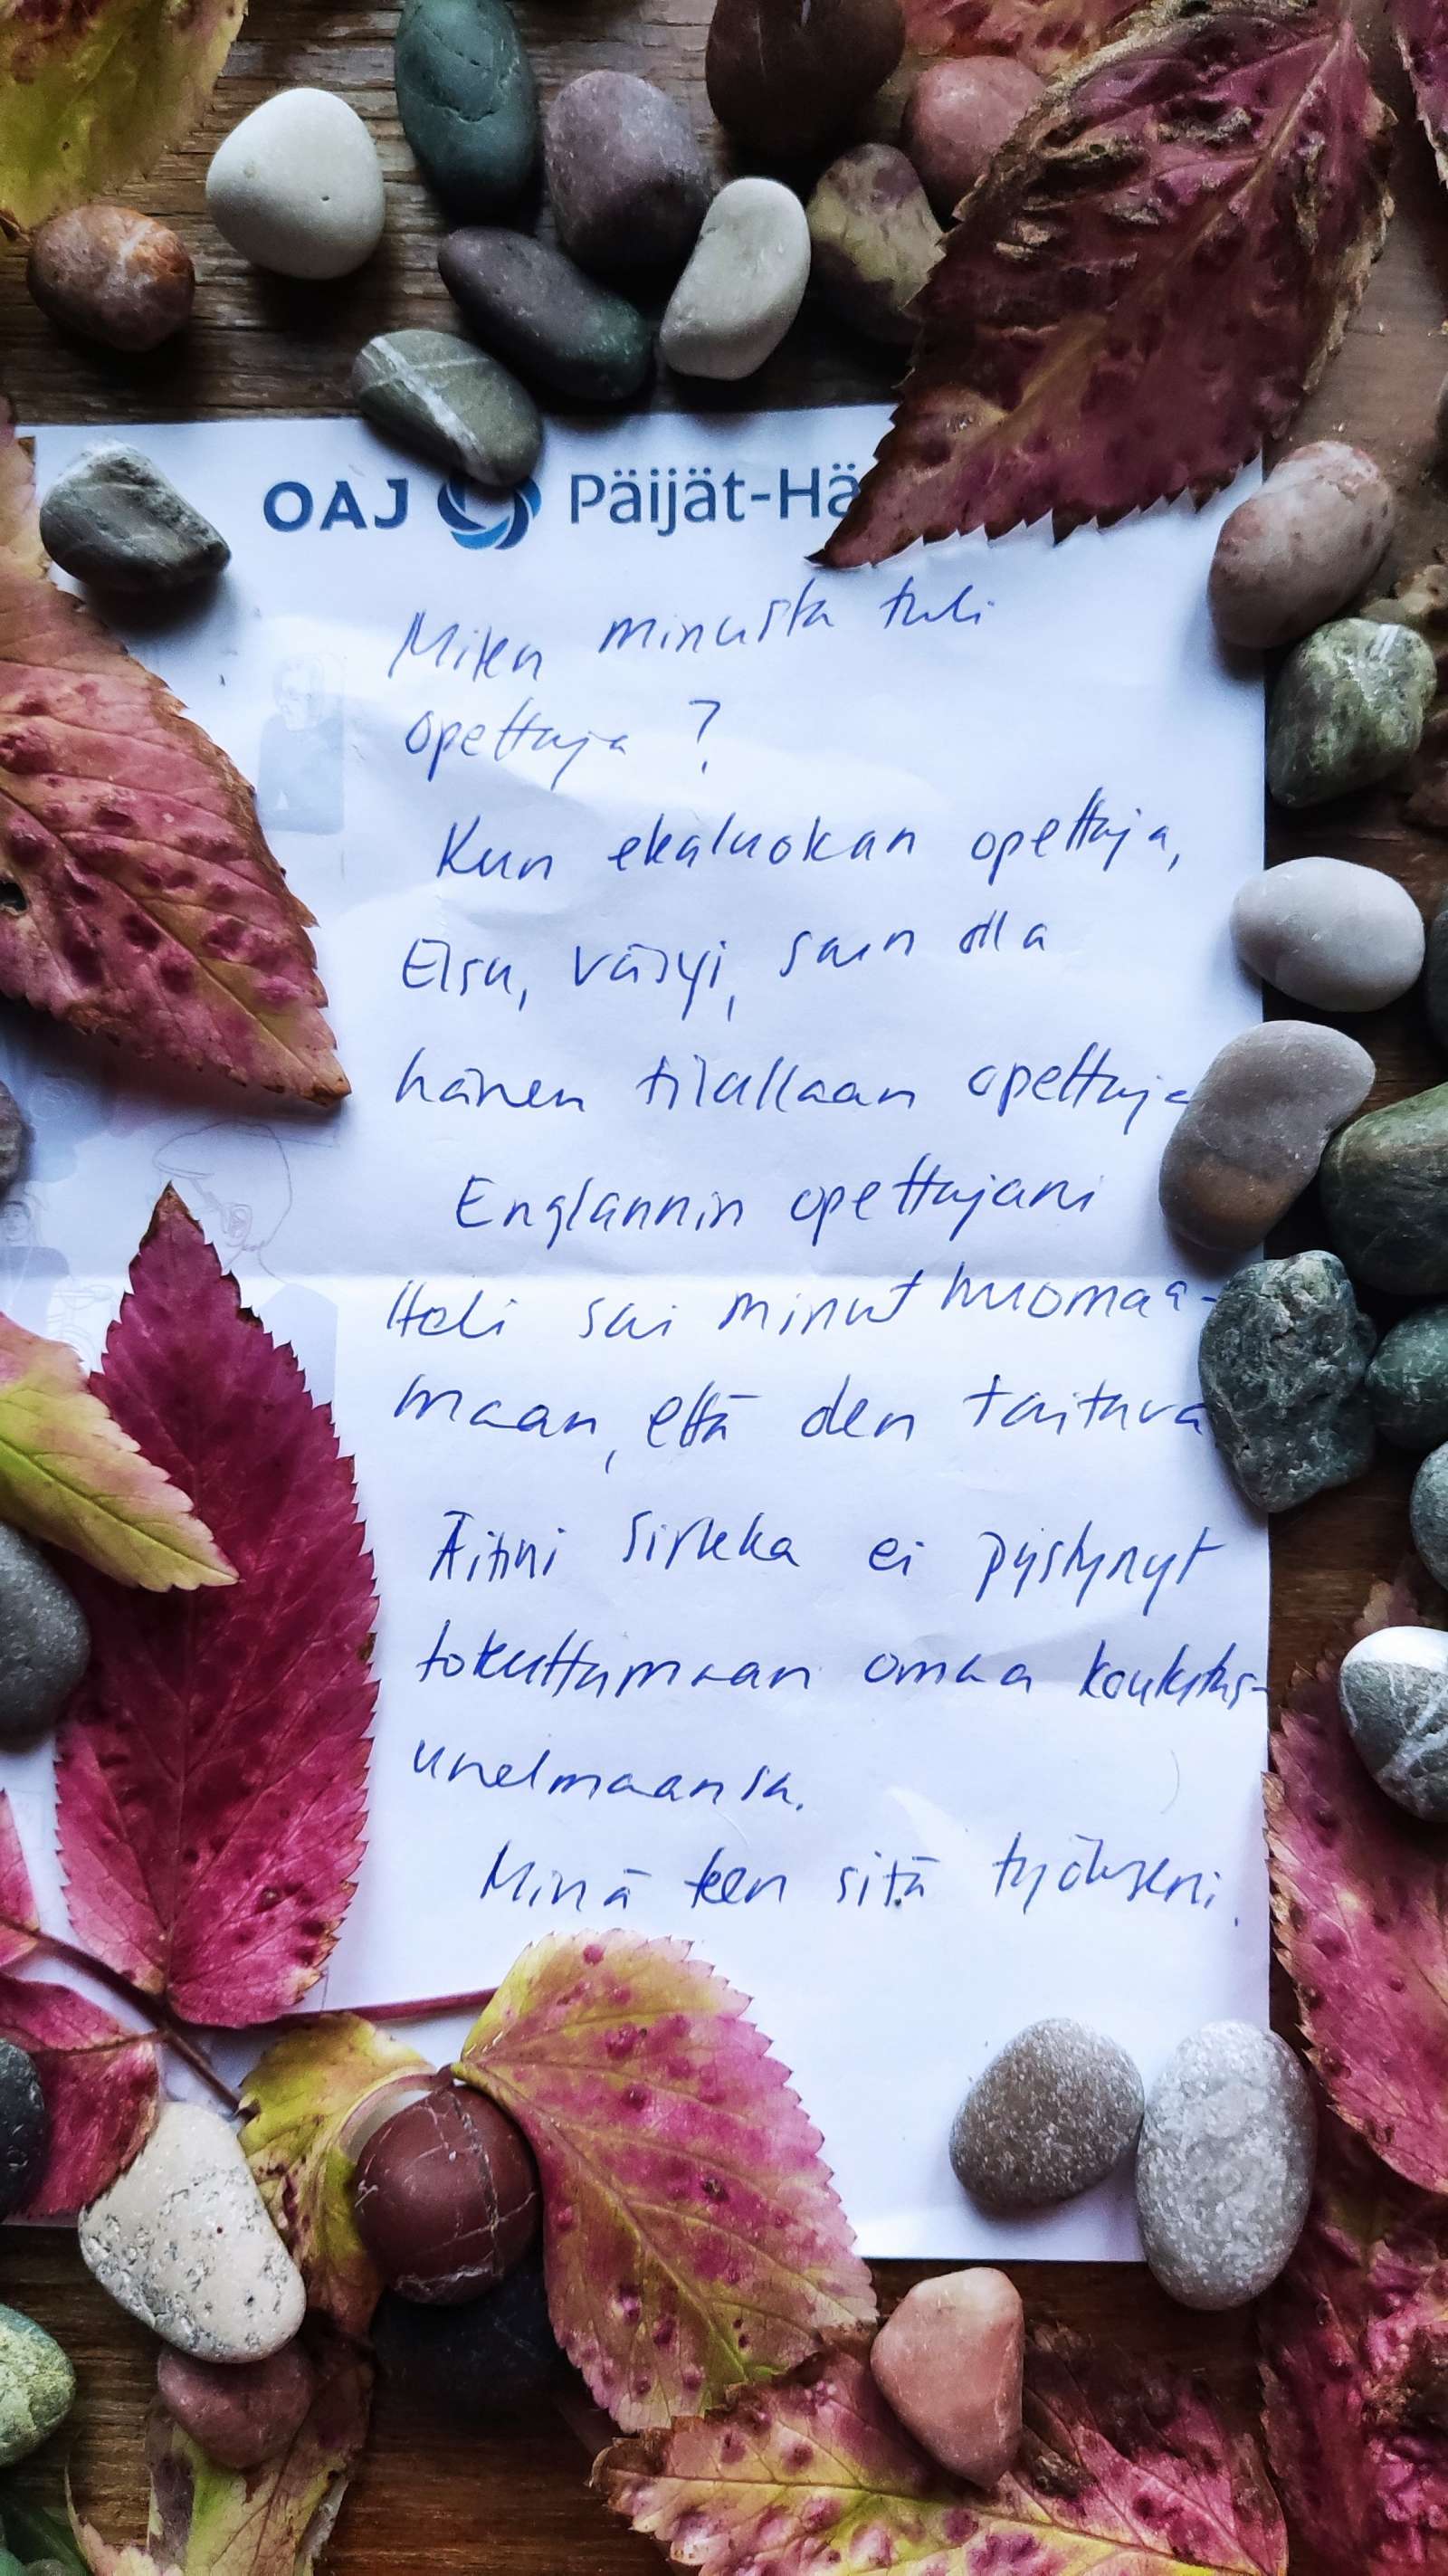 OAJ Päijät-Hä
Miten minusta tuli
opettaja ?
Kun ekaluokan opettaja,
Elsa, väsyi, sain olla
hänen tilallaan opettaja
Englannin opettajani
Heli sai minut huomaa-
maan, että olen taitava
Äitini Sirkka ei pystynyt
toteuttamaan omaa koulutus-
unelmaansa.
Minä teen sitä työkseni.